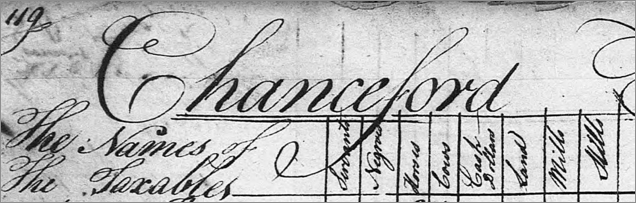 119
Chanceford
The Names of
The Taxables
Servants
Negros
Horses
Cows
Cash
Dollars
Land
Mills
Stills